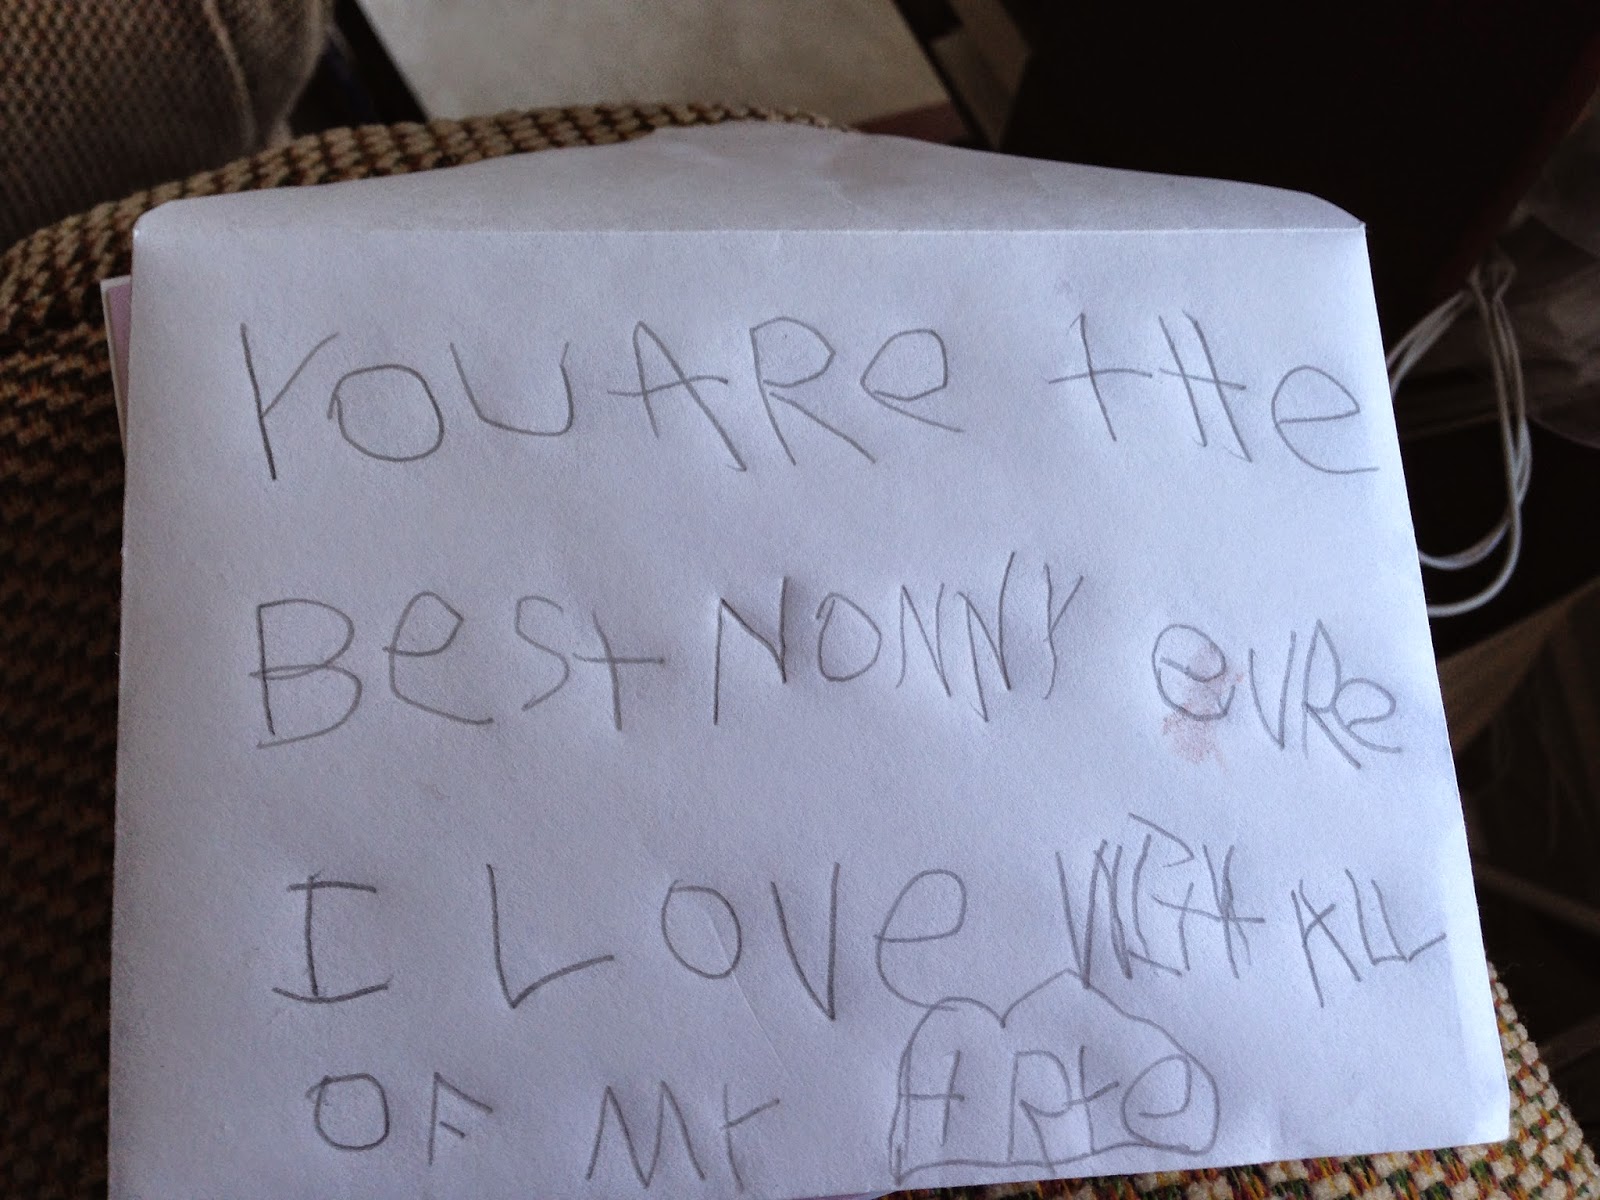 YOU ARe tHe
BeSt NONNY eVRe
I LOVe WitH ALL
OF MY HRte